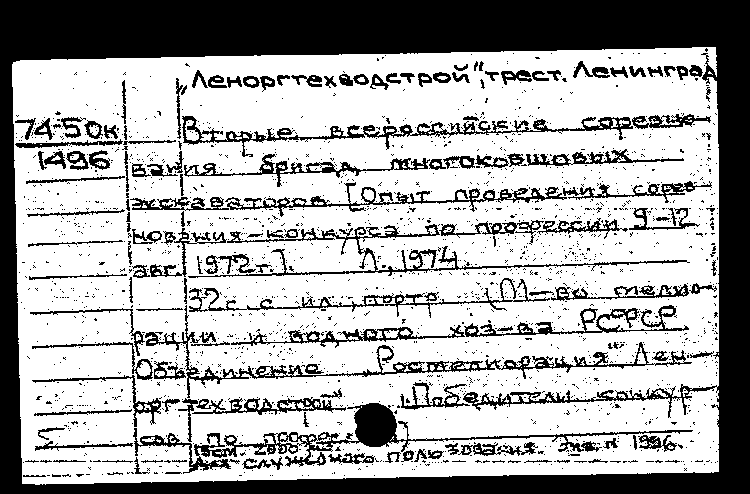 „Леноргтехводстрой", трест. Ленинград
74-50к
1496
Вторые всероссийские соревно-
вания бригад многоковшовых
экскаваторов. [Опыт проведения сорев
нования-конкурса по профессии 9-12
авг. 1972г.]. Л., 1974.
32с. с ил., портр. (М-во мелио-
рации и водного хоз-ва РСФСР.
Объединение „Росмелиорация" Лен-
оргтехводстрой" „Победители конкур-
сов по профес.)
18см. 2000 экз.
Для служебного пользования. Экз. № 1996.